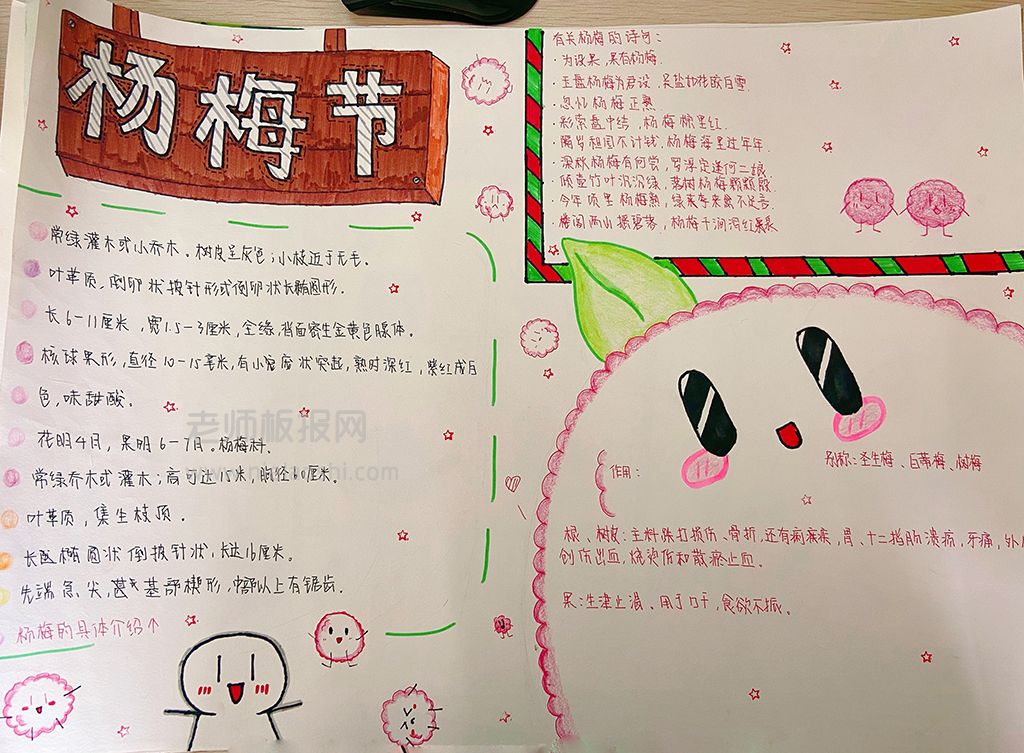 杨梅节
常绿灌木或小乔木。树皮呈灰色；小枝近于无毛。
叶革质，倒卵状披针形或倒卵状长椭圆形．
长6-11厘米，宽1.5-3厘米，全缘，背面密生金黄色腺体。
核球果形，直径10-15毫米，有小突起，熟时深红，紫红或白
色，味甜酸。
花期4月，果期6-7月。杨梅科．
常绿乔木或灌木；高可达15米，胸径60厘米。
叶革质，集生枝顶．
长椭圆状倒披针状，长达16厘米。
先端急，尖，基部楔形，中部以上有锯齿．
杨梅的具体介绍↑
有关杨梅的诗句：
·为设果，果有杨梅．
·玉盘杨梅为君设，吴盐如花皎白雪
·忽忆杨梅正熟．
·彩索盘中结，杨梅棕里红．
·隔岁租园不计钱，杨梅海里过年年．
·深秋杨梅有何尝，罗浮定逢何二娘
·倾壶竹叶沉沉绿，落树杨梅颗颗殷
·今年项里杨梅熟，绿来
·楼阁两山，杨梅千涧
作用：
别称：圣生梅、白蒂梅、树梅
根、树皮：主料跌打损伤、骨折，还有痢疾，胃、十二指肠溃疡，牙痛，外用
创伤出血，烧烫伤和散瘀止血．
果：生津止渴、用于口干，食欲不振、
老师板报网